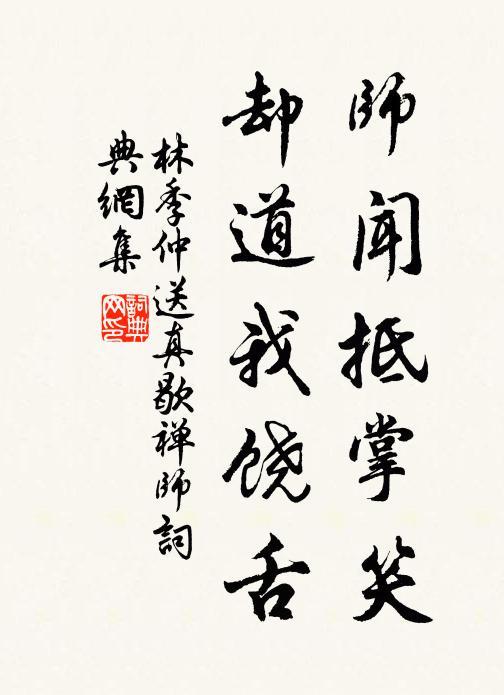 師聞抵掌笑
却道我饒舌
林季仲送真歇禅師詞
典網集
詞典网印